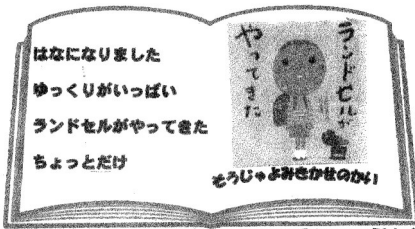 はなになりました
ゆっくりがいっぱい
ランドセルがやってきた
ちょっとだけ
ランドセルが
やってきた
そうじゃよみきかせのかい